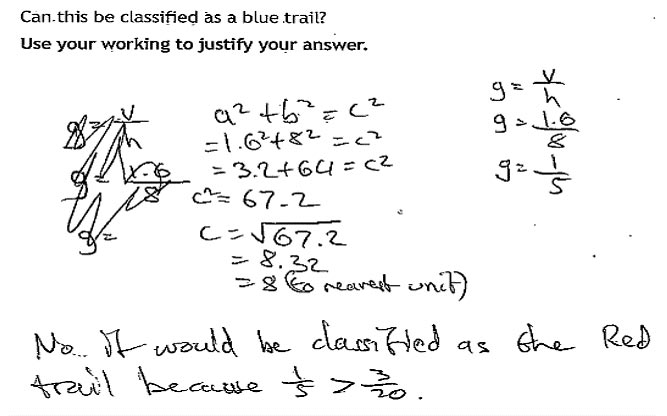 Can this be classified as a blue trail?
Use your working to justify your answer.
g = v/h
1.6
8
g =
g =
a² + b² = c²
= 1.6² + 8² = c²
= 3.2 + 64 = c²
c² = 67.2
c = √67.2
= 8.32
= 8 (to nearest unit)
g = v/h
g = 1.6/8
g = 1/5
No.. It would be classified as the Red
trail because 1/5 > 3/20.